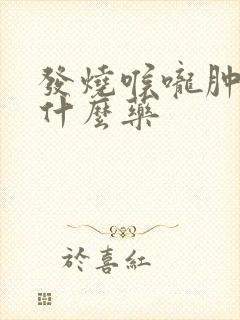 發燒喉嚨肿
什麼藥
於喜紅